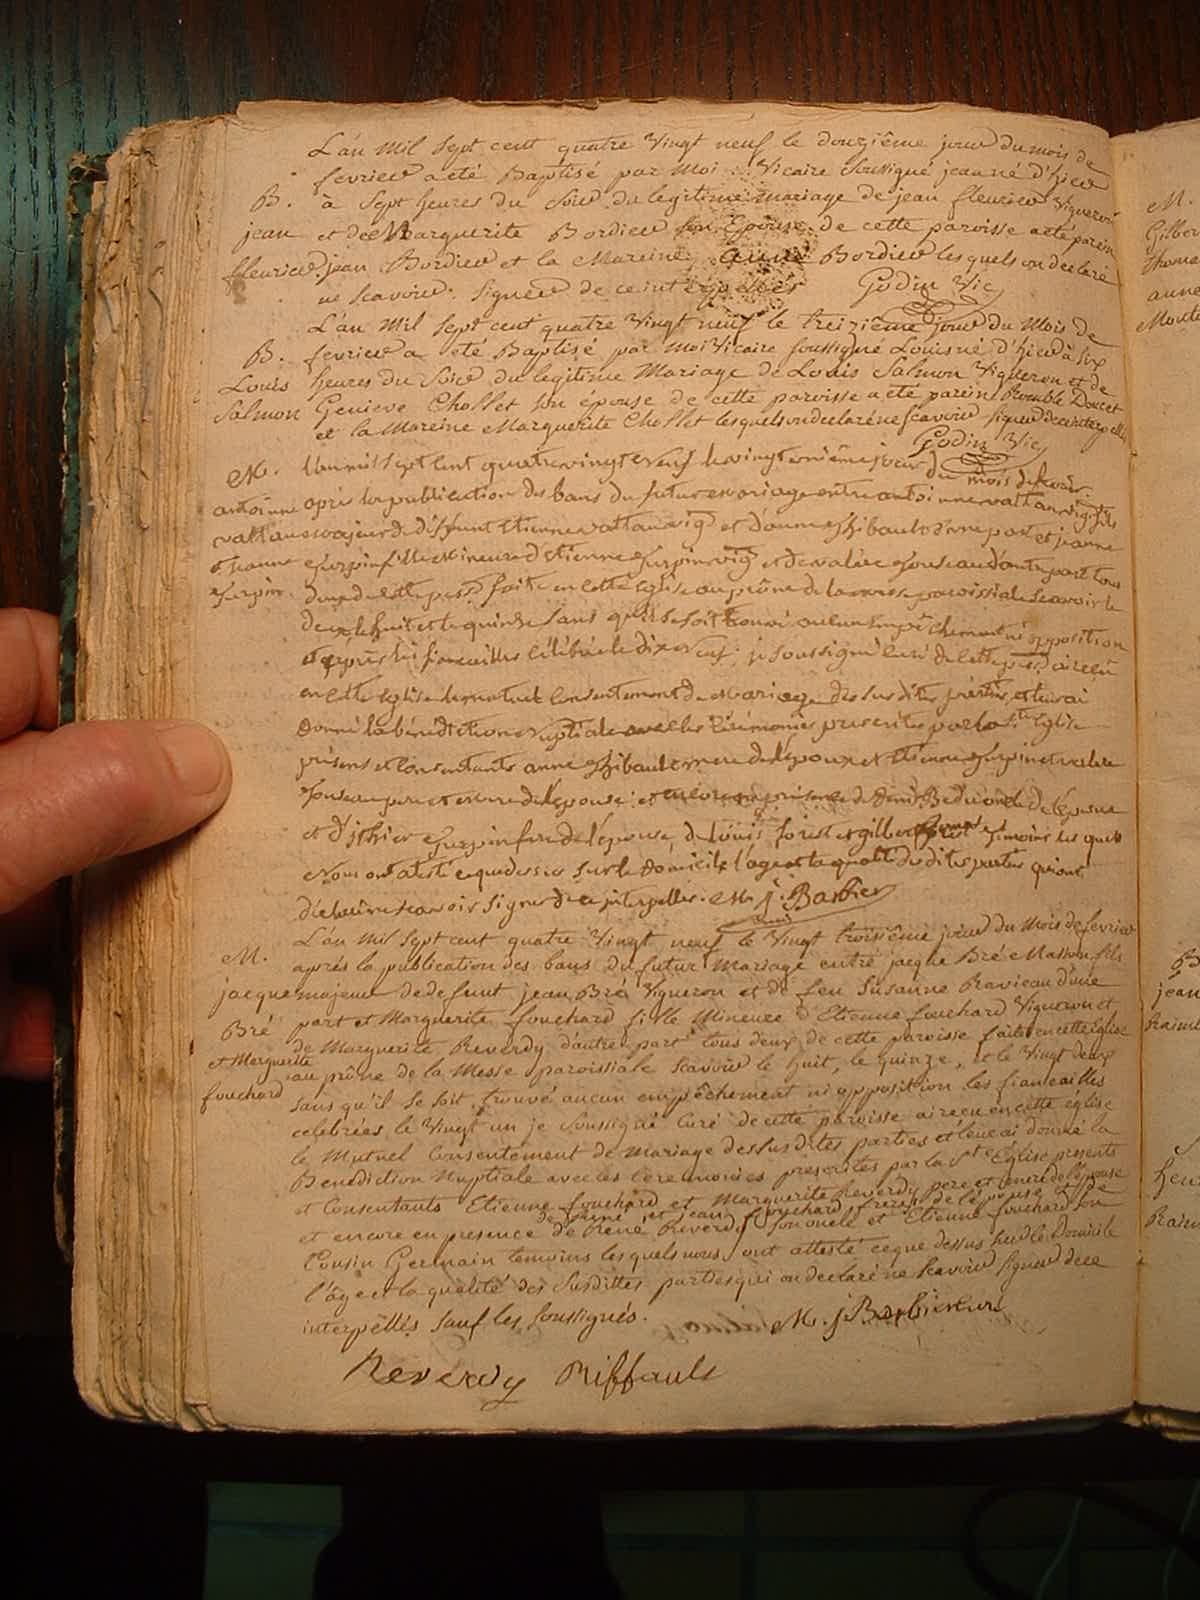 L'an Mil Sept cent quatre Vingt neuf le douzième jour du mois de
fevrier a eté Baptisé par Moi Vicaire Soussigné jean né d'hier
B. à Sept heures du Soir du legitime mariage de jean fleurier Vigneron
jean et de Marguerite Bordier son Epouse de cette paroisse a eté parein
fleurier jean Bordier et la Mareine anne Bordier lesquels on declaré
ne Scavoir Signer de ce interpellés Godin Vic
L'an Mil Sept cent quatre Vingt neuf le treizième jour du Mois de
B. fevrier a eté Baptisé par Moi Vicaire soussigné Louis né d'hier à six
Louis heures du Soir du legitime Mariage de Louis Salmon Vigneron et de
Salmon Genieve Chollet son épouse de cette paroisse a eté parein Romble Doucet
et la Mareine Marguerite Chollet lesquels on declaré ne scavoir signer de ce interpellés
Godin Vic
M. L'an mil sept cent quatre vingt neuf le vingt troisième jour du mois de fevrier
antoine après la publication des bans du futur mariage entre antoinne vattan vig fils
vattan majeur de deffunt Etienne vattan vig et d'anne Thibault d'une part et jeanne
et jeanne Turpin fille mineure d'Etienne Turpin vig et de valere Touseau d'autre part tous
Turpin deux de cette parse faite en cette Eglise au prône de la messe paroissiale Scavoir le
deux le huit et le quinze sans qu'il se soit trouvé aucun empêchement ni opposition
et après les fiancailles célébrées le dix neuf, je soussigné curé de cette parse ai reçu
en cette Eglise le mutuel consentement de mariage des susdites parties et leur ai
donné la bénédiction nuptiale avec les cérémonies prescrites par la ste Eglise
présens et consentants anne Thibault mere de l'époux et Etienne Turpin et valere
Touseau pere et mere de l'épouse; et encore en présence de Denis Bedu oncle de l'épouse
et d' Turpin frere de l'épouse, de Louis forest et gilbert forest témoins les quels
nous on atesté ce que dessus sur le domicile l'age et la qualité des dites parties qui ont
déclaré ne scavoir signer de ce interpellés. M. j. Barbier
L'an Mil Sept cent quatre Vingt neuf le Vingt troisième jour du Mois de fevrier
M. aprés la publication des bans du futur Mariage entre jacque Bré Masson fils
jacque majeur de defunt jean Bré Vigneron et de feu Susanne Ravieau d'une
Bré part et Marguerite fouchard fille Mineure d'Etienne fouchard Vigneron et
et Merguerite de Marguerite Reverdy d'autre part tous deux de cette paroisse faite en cette église
fouchard au prône de la Messe paroissiale Scavoir le huit, le quinze, et le Vingt deux
sans qu'il se soit trouvé aucun empêchement ni opposition les fiancailles
celebrées le Vingt un je Soussigné Curé de cette paroisse ai recu en cette eglise
le Mutuel Consentement de Mariage des susdites parties et leur ai donné la
Benediction Nuptiale avec les ceremonies prescrites par la Ste Eglise presents
et Consentants Etienne fouchard et Marguerite Reverdy pere et mere de l'épouse
et encore en presence de René et jean fouchard freres de l'épouse et de
de René Reverdy son oncle et Etienne fouchard son
Cousin Germain temoins lesquels nous ont attesté ce que dessus sur le Domicile
l'âge et la qualité des Susdittes parties qui on declaré ne Scavoir Signer de ce
interpellés sauf les soussignés. M. j. Barbier curé
Reverdy Riffault
M.
Gilber
Thoma
anne
B
jean
Raim